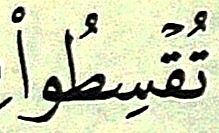 تُقۡسِطُواْ